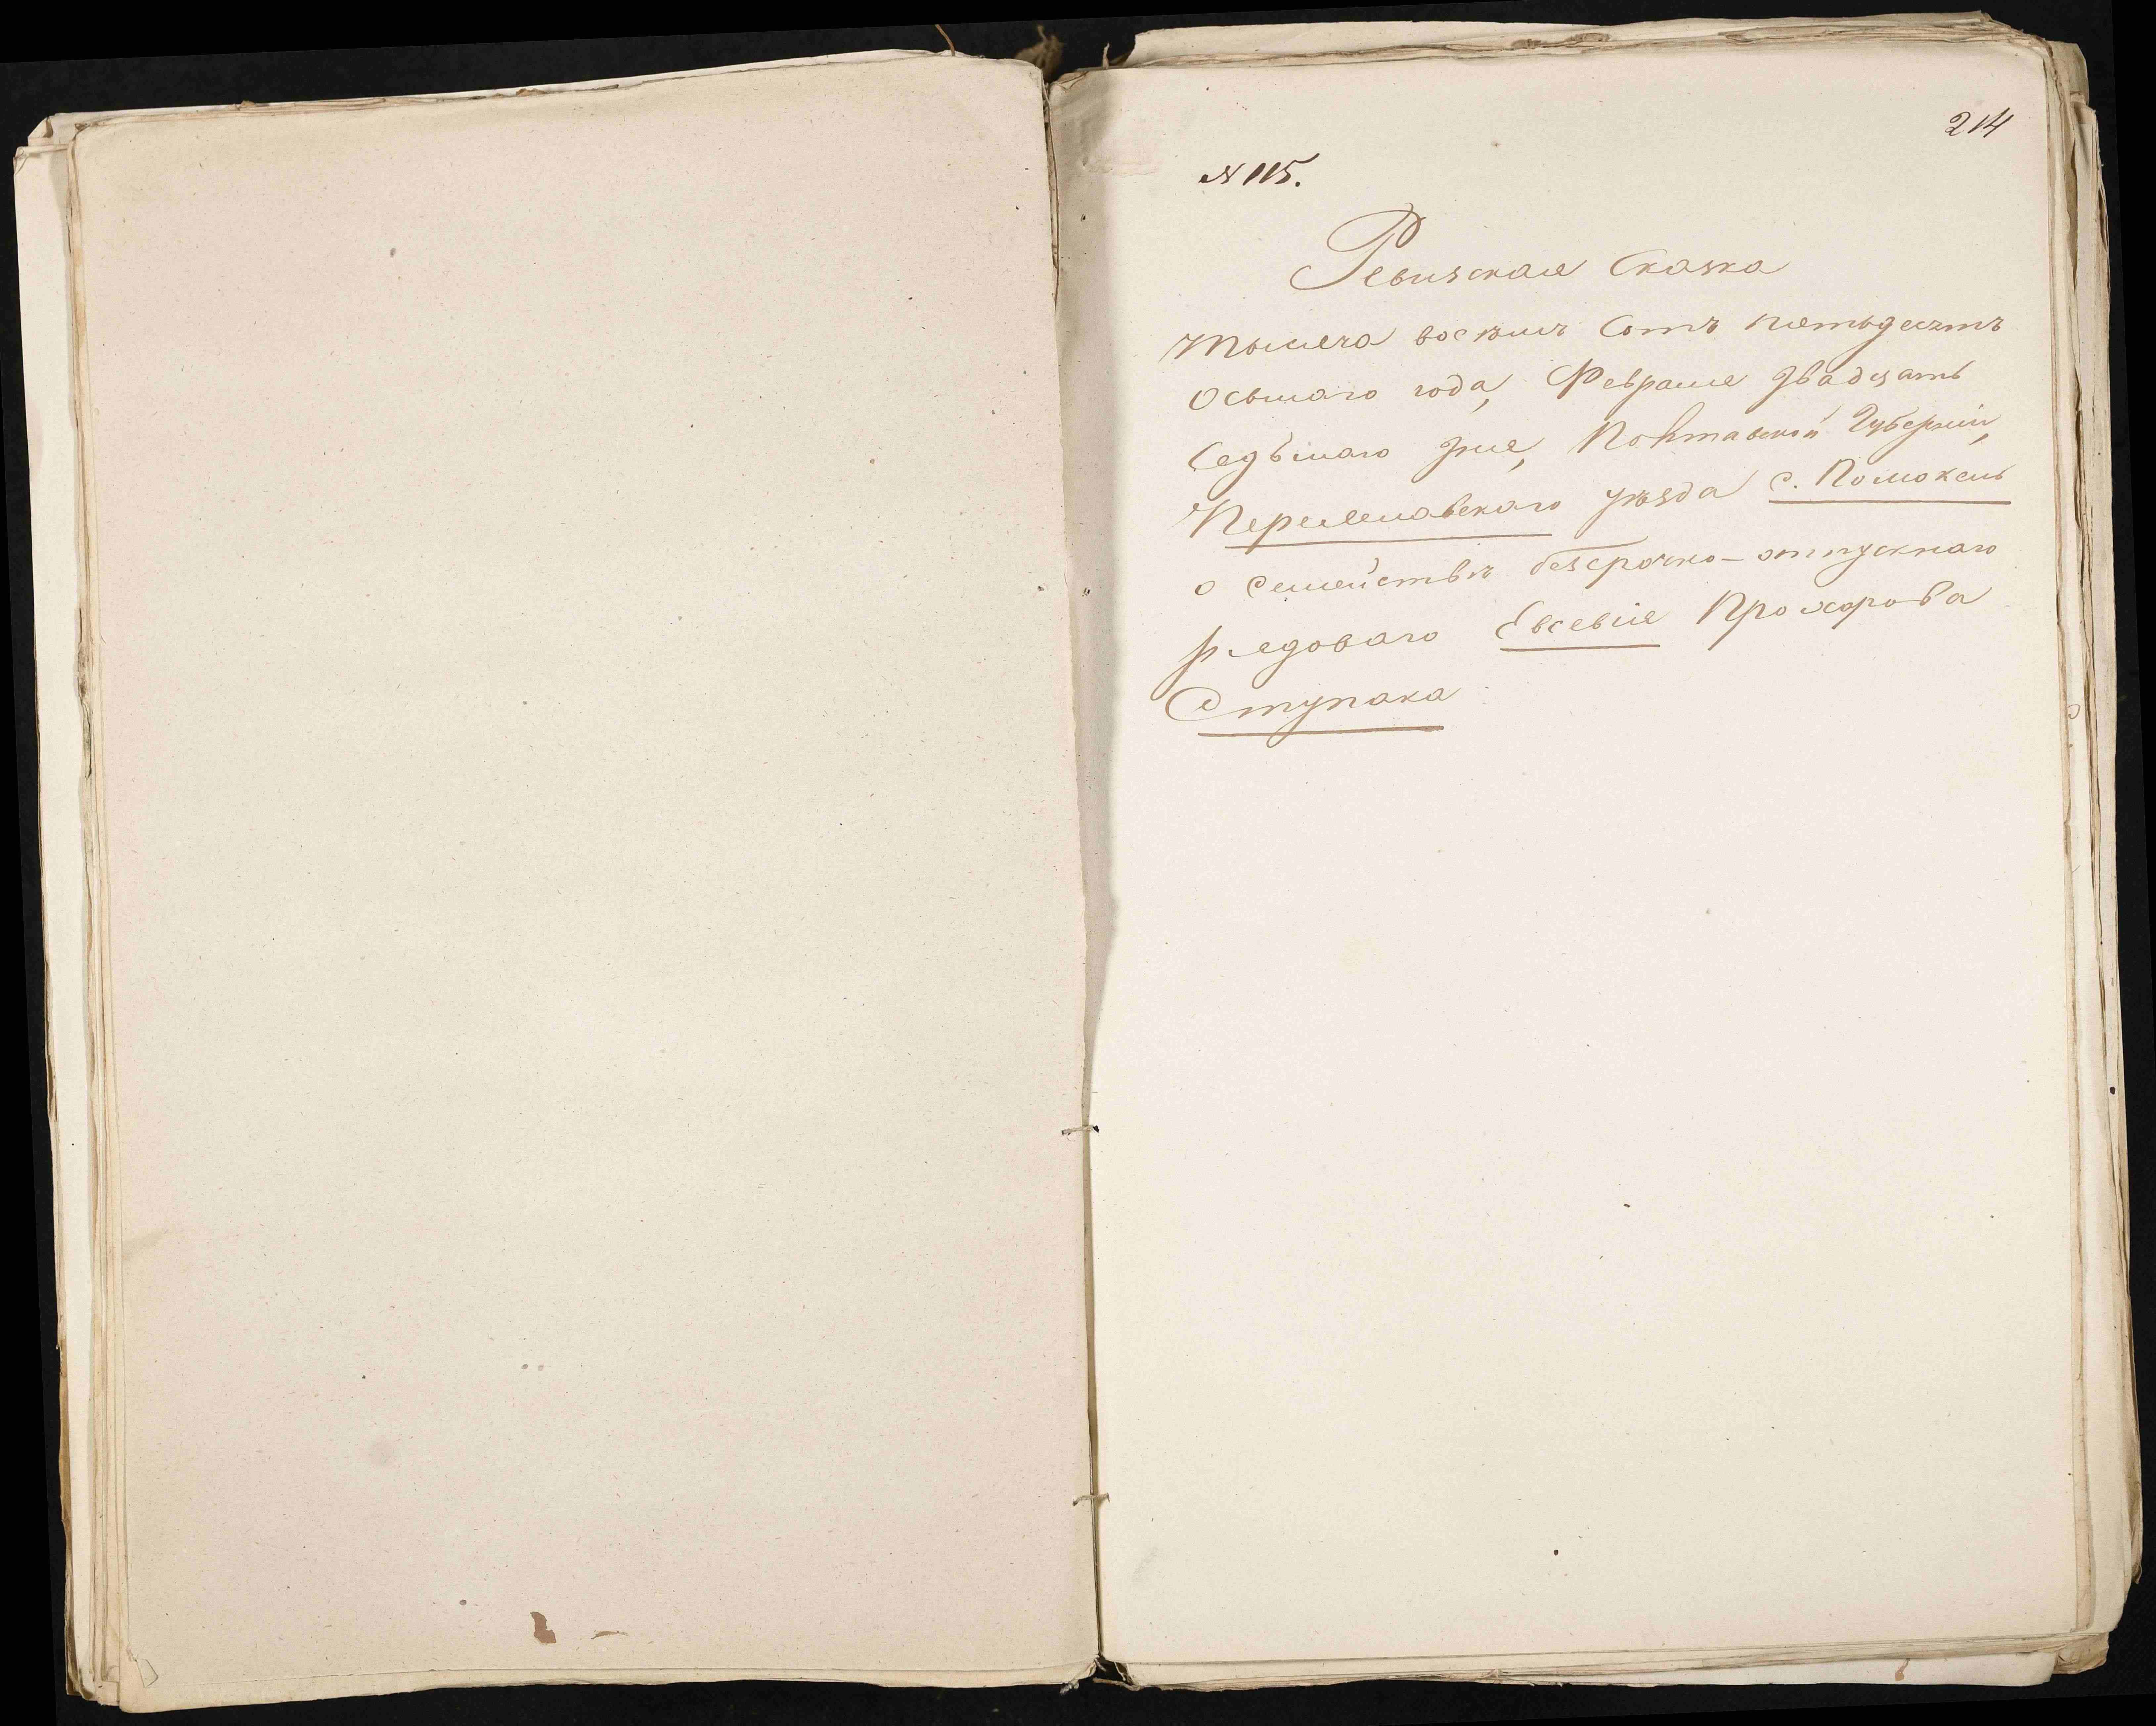 214
№ 115.
Ревизская Сказка
тысяча восѣмъ Сотъ пятьдесятъ
Осьмаго года, Февраля двадцать
Седьмаго дня, Полтавской Губерніи,
Переяславскаго уѣзда с. Помоклъ
о Семействѣ безсрочно-отпускнаго
рядоваго Евсевія Прохорова
Ступака